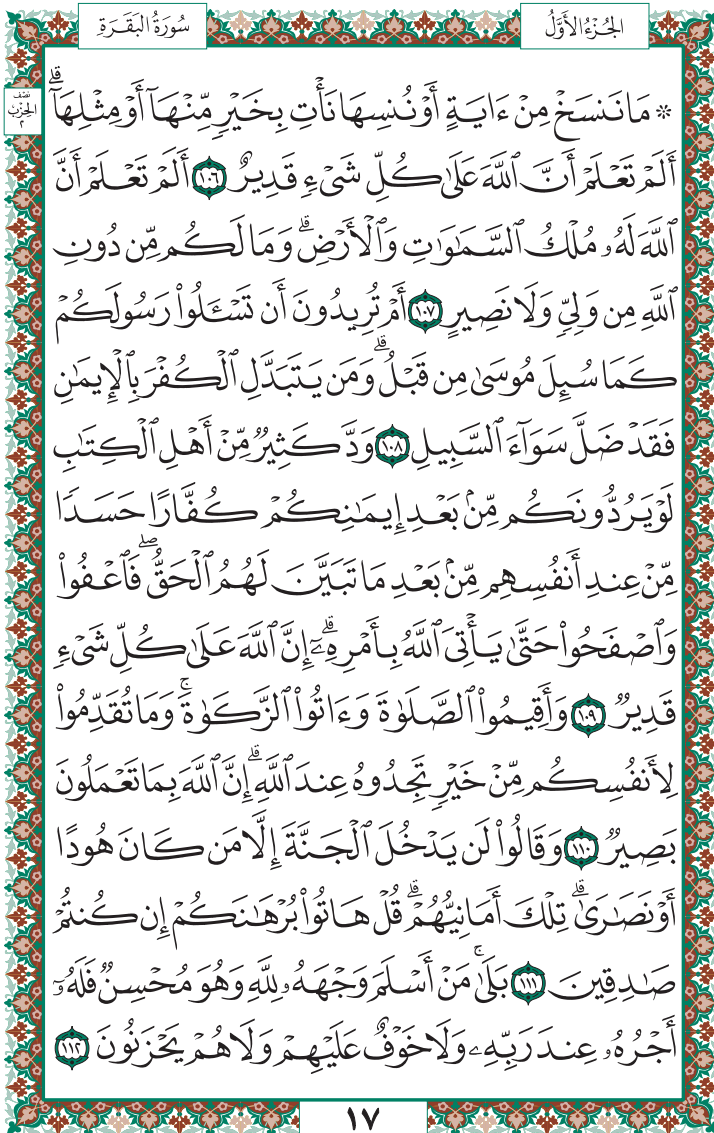 سُورَةُ البَقَرَةِ
الجُزْءُ الأَوَّلُ
نصف
الحِزْب
٢
۞ مَا نَنسَخْ مِنْ ءَايَةٍ أَوْ نُنسِهَا نَأْتِ بِخَيْرٍ مِّنْهَآ أَوْ مِثْلِهَآۗ
أَلَمْ تَعْلَمْ أَنَّ ٱللَّهَ عَلَىٰ كُلِّ شَىْءٍ قَدِيرٌ ١٠٦ أَلَمْ تَعْلَمْ أَنَّ
ٱللَّهَ لَهُۥ مُلْكُ ٱلسَّمَٰوَٰتِ وَٱلْأَرْضِۗ وَمَا لَكُم مِّن دُونِ
ٱللَّهِ مِن وَلِىٍّ وَلَا نَصِيرٍ ١٠٧ أَمْ تُرِيدُونَ أَن تَسْـَٔلُوا۟ رَسُولَكُمْ
كَمَا سُئِلَ مُوسَىٰ مِن قَبْلُۗ وَمَن يَتَبَدَّلِ ٱلْكُفْرَ بِٱلْإِيمَٰنِ
فَقَدْ ضَلَّ سَوَآءَ ٱلسَّبِيلِ ١٠٨ وَدَّ كَثِيرٌ مِّنْ أَهْلِ ٱلْكِتَٰبِ
لَوْ يَرُدُّونَكُم مِّنۢ بَعْدِ إِيمَٰنِكُمْ كُفَّارًا حَسَدًا
مِّنْ عِندِ أَنفُسِهِم مِّنۢ بَعْدِ مَا تَبَيَّنَ لَهُمُ ٱلْحَقُّۖ فَٱعْفُوا۟
وَٱصْفَحُوا۟ حَتَّىٰ يَأْتِىَ ٱللَّهُ بِأَمْرِهِۦٓۗ إِنَّ ٱللَّهَ عَلَىٰ كُلِّ شَىْءٍ
قَدِيرٌ ١٠٩ وَأَقِيمُوا۟ ٱلصَّلَوٰةَ وَءَاتُوا۟ ٱلزَّكَوٰةَۚ وَمَا تُقَدِّمُوا۟
لِأَنفُسِكُم مِّنْ خَيْرٍ تَجِدُوهُ عِندَ ٱللَّهِۗ إِنَّ ٱللَّهَ بِمَا تَعْمَلُونَ
بَصِيرٌ ١١٠ وَقَالُوا۟ لَن يَدْخُلَ ٱلْجَنَّةَ إِلَّا مَن كَانَ هُودًا
أَوْ نَصَٰرَىٰۗ تِلْكَ أَمَانِيُّهُمْۗ قُلْ هَاتُوا۟ بُرْهَٰنَكُمْ إِن كُنتُمْ
صَٰدِقِينَ ١١١ بَلَىٰۚ مَنْ أَسْلَمَ وَجْهَهُۥ لِلَّهِ وَهُوَ مُحْسِنٌ فَلَهُۥٓ
أَجْرُهُۥ عِندَ رَبِّهِۦ وَلَا خَوْفٌ عَلَيْهِمْ وَلَا هُمْ يَحْزَنُونَ ١١٢
١٧